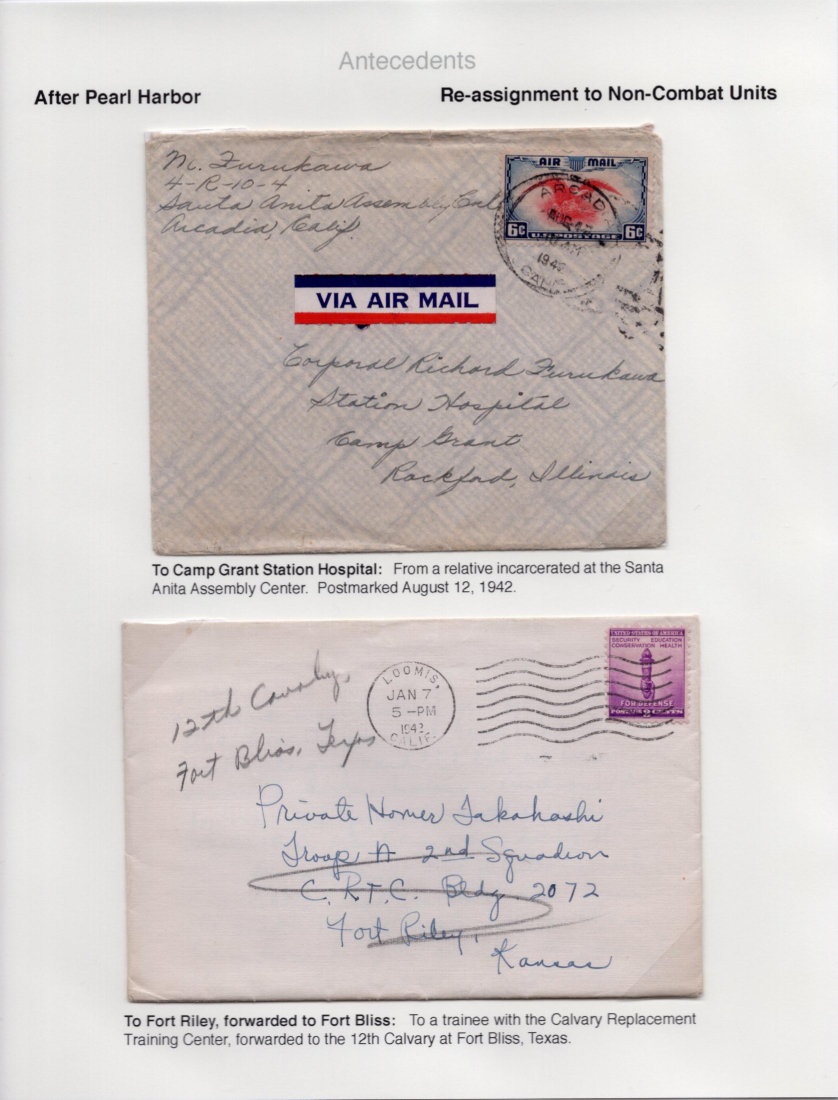 Antecedents
After Pearl Harbor
Re-assignment to Non-Combat Units
M. Furukawa
4-R-10-4
Santa Anita Assembly
Arcadia Calif
AIR MAIL
6¢ 6¢
U.S. POSTAGE
ARCAD
AUG
194
VIA AIR MAIL
Corporal Richard Furukawa
Station Hospital
Camp Grant
Rockford, Illinois
To Camp Grant Station Hospital: From a relative incarcerated at the Santa
Anita Assembly Center. Postmarked August 12, 1942.
12th Cavalry,
Fort Bliss, Texas
LOOMIS,
JAN 7
5 -PM
194
CALIF.
UNITED STATES OF AMERICA
SECURITY EDUCATION
CONSERVATION HEALTH
FOR DEFENSE
POSTAGE 3 CENTS
Private Homer Takahashi
Troop A 2nd Squadron
C.R.T.C. Bldg 2072
Fort Riley,
Kansas
To Fort Riley, forwarded to Fort Bliss: To a trainee with the Calvary Replacement
Training Center, forwarded to the 12th Calvary at Fort Bliss, Texas.